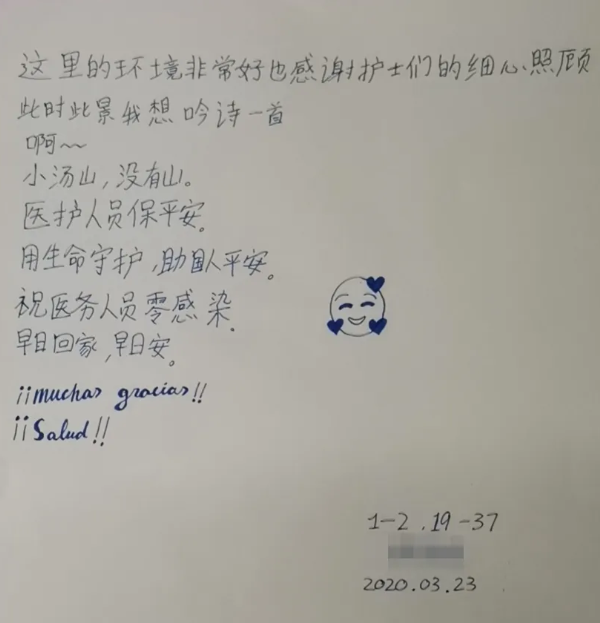 这里的环境非常好也感谢护士们的细心照顾
此时此景我想吟诗一首
啊~~
小汤山,没有山。
医护人员保平安。
用生命守护,助国人平安。
祝医务人员零感染.
早日回家,早日安。
¡¡muchas gracias!!
¡¡Salud!!
1-2.19-37
2020.03.23